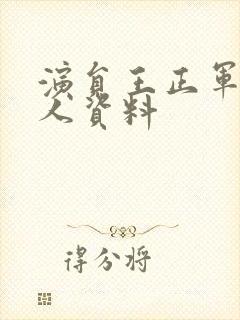 演員王正軍
人資料
得分将